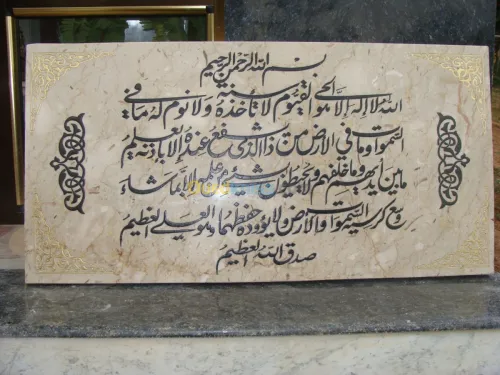 بسم الله الرحمن الرحيم
الله لا اله الا هو الحي القيوم لا تأخذه سنة ولا نوم له ما في
السموات وما في الارض من ذا الذي يشفع عنده الا باذنه يعلم
ما بين أيديهم وما خلفهم ولا يحيطون بشيء من علمه إلا بما شاء
وسع كرسيه السموات والارض ولا يؤوده حفظهما وهو العلي العظيم
صدق الله العظيم